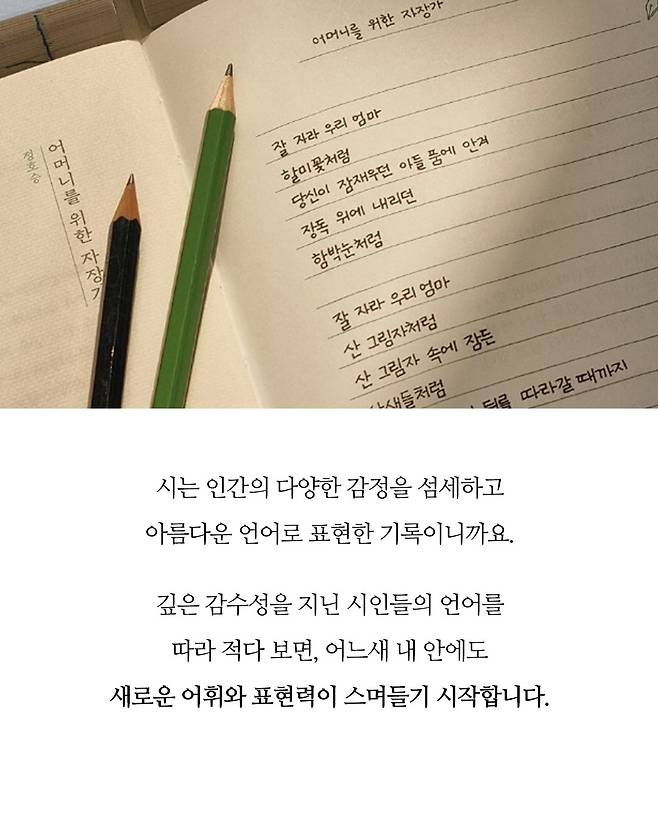 정호승
어머니를 위한 자장가
어머니를 위한 자장가
잘 자라 우리 엄마
할미꽃처럼
당신이 잠재우던 아들 품에 안겨
장독 위에 내리던
함박눈처럼
잘 자라 우리 엄마
산 그림자처럼
산 그림자 속에 잠든
산새들처럼
따라갈 때까지
시는 인간의 다양한 감정을 섬세하고
아름다운 언어로 표현한 기록이니까요.
깊은 감수성을 지닌 시인들의 언어를
따라 적다 보면, 어느새 내 안에도
새로운 어휘와 표현력이 스며들기 시작합니다.